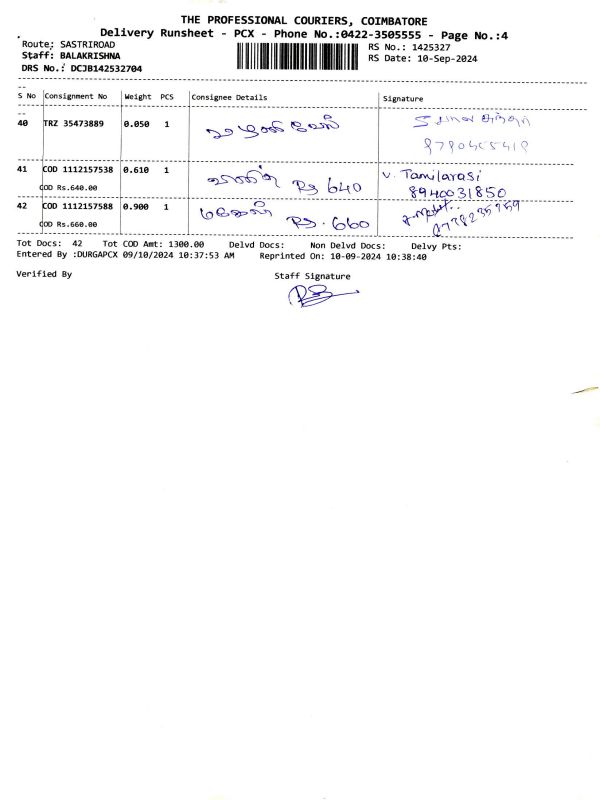 THE PROFESSIONAL COURIERS, COIMBATORE
Delivery Runsheet - PCX - Phone No.:0422-3505555 - Page No.:4
Route: SASTRIROAD RS No.: 1425327
Staff: BALAKRISHNA RS Date: 10-Sep-2024
DRS No.: DCJB142532704
S No Consignment No Weight PCS Consignee Details Signature
40 TRZ 35473889 0.050 1
41 COD 1112157538 0.610 1 Rs 640 v. Tamilarasi
COD Rs.640.00 8940031850
42 COD 1112157588 0.900 1 மகேஷ் Rs. 660
COD Rs.660.00
Tot Docs: 42 Tot COD Amt: 1300.00 Delvd Docs: Non Delvd Docs: Delvy Pts:
Entered By :DURGAPCX 09/10/2024 10:37:53 AM Reprinted On: 10-09-2024 10:38:40
Verified By Staff Signature